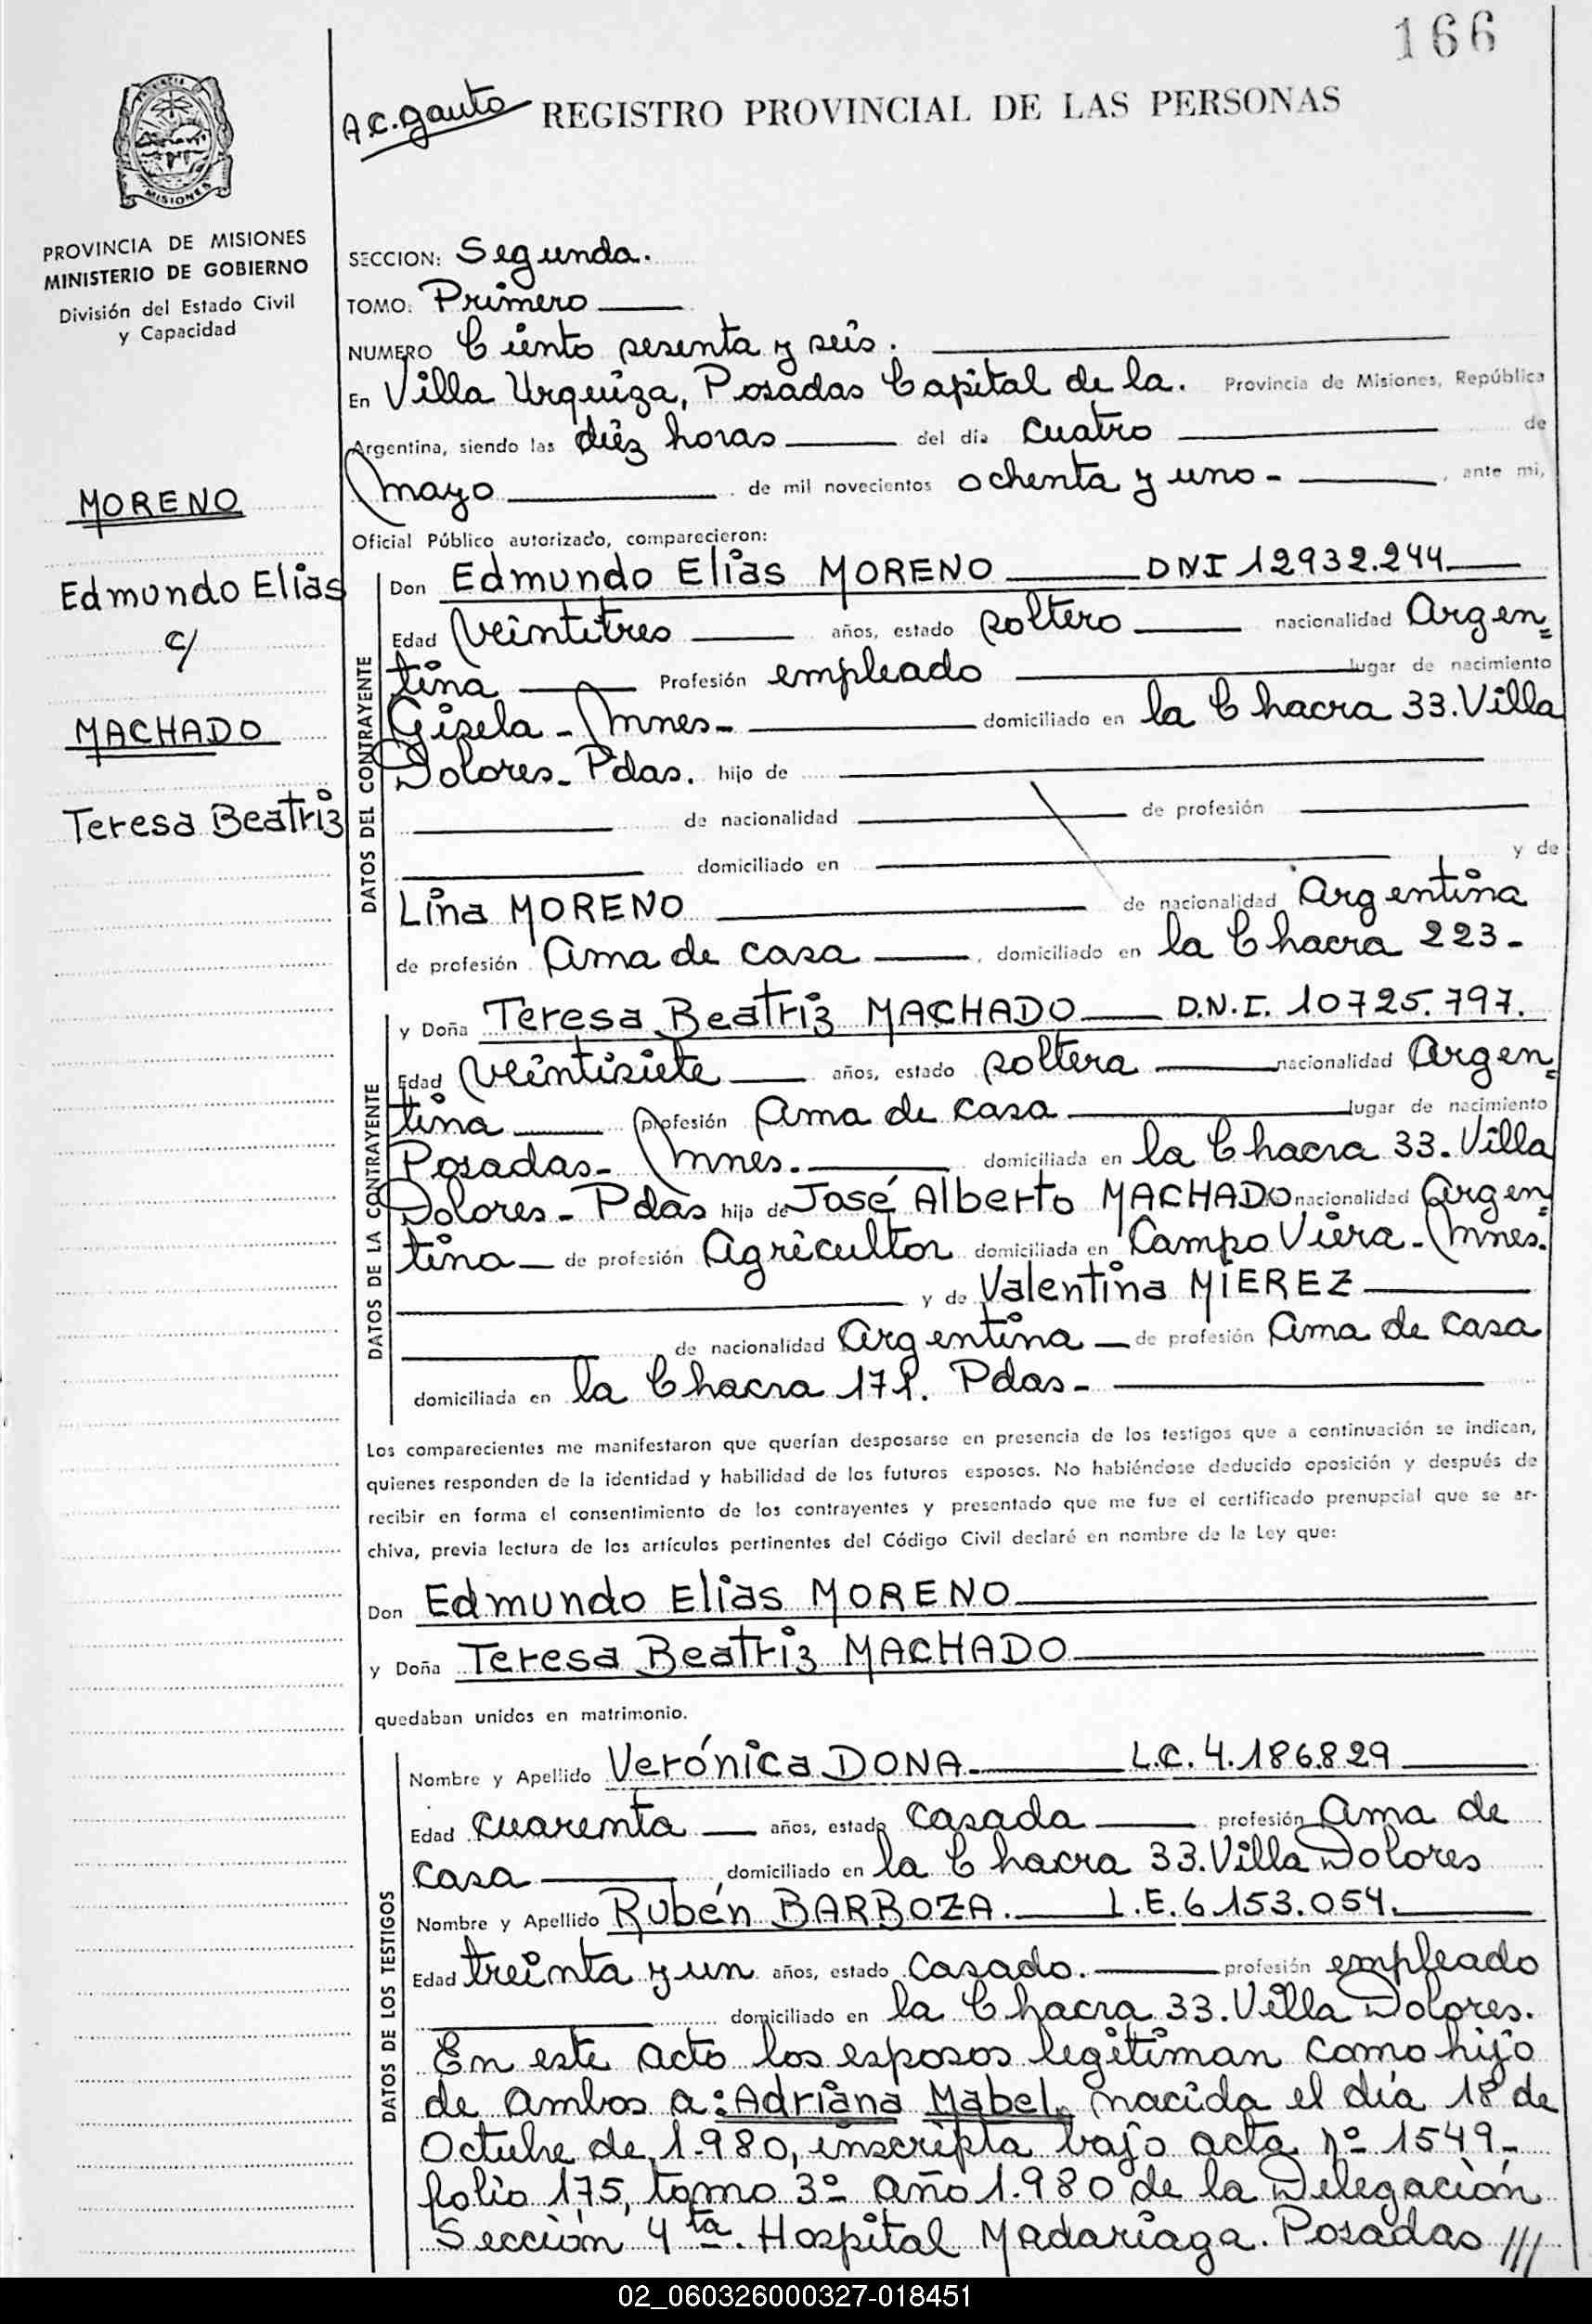 166
A.C. Gauto
REGISTRO PROVINCIAL DE LAS PERSONAS
PROVINCIA
MISIONES
PROVINCIA DE MISIONES
MINISTERIO DE GOBIERNO
División del Estado Civil
y Capacidad
MORENO
Edmundo Elias
c/
MACHADO
Teresa Beatriz
SECCION: Segunda.
TOMO: Primero
NUMERO Ciento sesenta y seis.
En Villa Urquiza, Posadas Capital de la. Provincia de Misiones, República
Argentina, siendo las diéz horas del día cuatro de
mayo de mil novecientos ochenta y uno- , ante mi,
Oficial Público autorizado, comparecieron:
DATOS DEL CONTRAYENTE
Don Edmundo Elias MORENO DNI 12932.244
Edad veintitres años, estado soltero nacionalidad Argen=
tina Profesión empleado lugar de nacimiento
Gisela - Mnes- domiciliado en la Chacra 33. Villa
Dolores- Pdas. hijo de
de nacionalidad de profesión
domiciliado en y de
Lina MORENO de nacionalidad Argentina
de profesión Ama de casa , domiciliado en la Chacra 223-
DATOS DE LA CONTRAYENTE
y Doña Teresa Beatriz MACHADO D.N.I. 10725.797.
Edad veintisiete años, estado soltera nacionalidad Argen=
tina profesión Ama de casa lugar de nacimiento
Posadas- Mnes. domiciliada en la Chacra 33. Villa
Dolores- Pdas hija de José Alberto MACHADO nacionalidad Argen=
tina de profesión Agricultor domiciliada en Campo Viera- Mnes.
y de Valentina MIEREZ
de nacionalidad Argentina de profesión Ama de casa
domiciliada en la Chacra Pdas-
Los comparecientes me manifestaron que querían desposarse en presencia de los testigos que a continuación se indican,
quienes responden de la identidad y habilidad de los futuros esposos. No habiéndose deducido oposición y después de
recibir en forma el consentimiento de los contrayentes y presentado que me fue el certificado prenupcial que se ar-
chiva, previa lectura de los artículos pertinentes del Código Civil declaré en nombre de la Ley que:
Don Edmundo Elias MORENO
y Doña Teresa Beatriz MACHADO
quedaban unidos en matrimonio.
DATOS DE LOS TESTIGOS
Nombre y Apellido Verónica DONA L.C. 4.186.829
Edad cuarenta años, estado casada profesión Ama de
casa , domiciliado en la Chacra 33. Villa Dolores
Nombre y Apellido Rubén BARBOZA. L.E. 6.153.054.
Edad treinta y un años, estado casado. profesión empleado
domiciliado en la Chacra 33. Villa Dolores.
En este acto los esposos legitiman como hijo
de ambos a: Adriana Mabel, nacida el día 18 de
Octubre de 1.980, inscripta bajo acta nº 1549-
folio 175, tomo 3º año 1.980 de la Delegación
Sección 4ta. Hospital Madariaga. Posadas ///
02_060326000327-018451